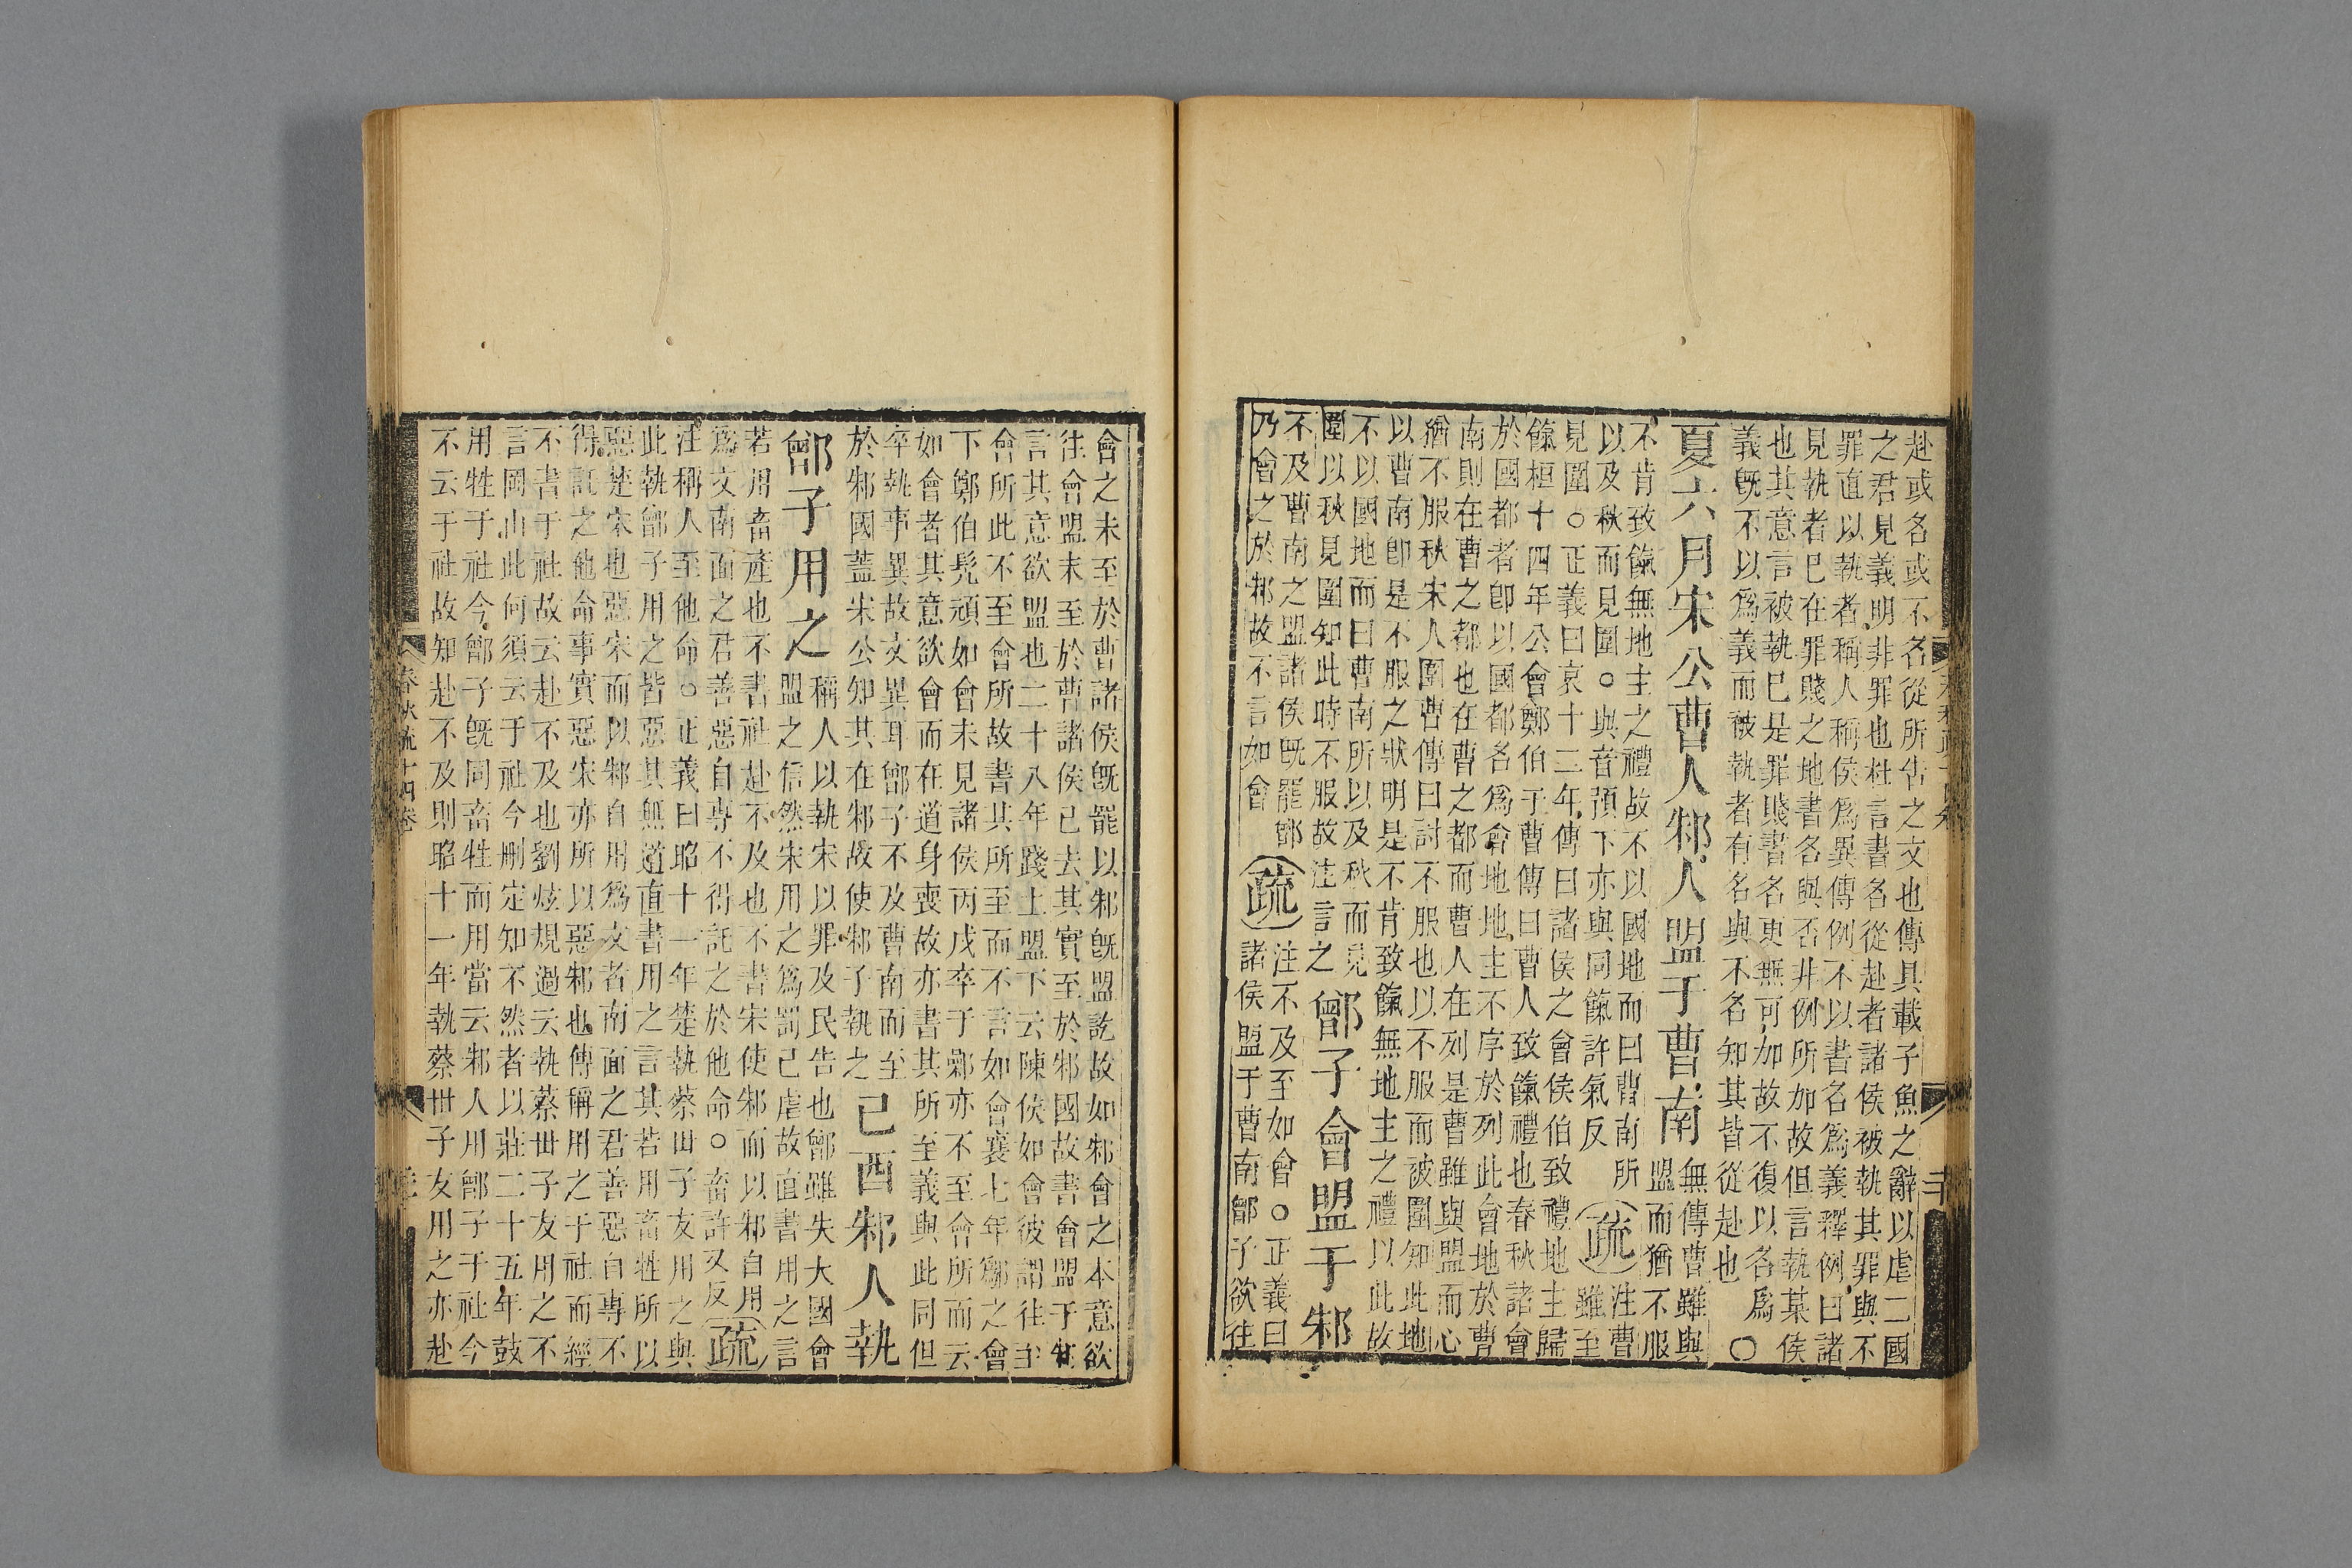 赴或名或不名從所告之文也傳具載子魚之辭以虐二國
之君見義明非罪也杜言書名從赴者諸侯被執其罪與不
罪直以執者稱人稱侯爲異傳例不以書名爲義釋例曰諸
見執者已在罪賤之地書名與否非例所加故但言執某侯
也其意言被執巳是罪賤書名更無可加故不復以名爲
義旣不以爲義而被執者有名與不名知其皆從赴也○
夏六月宋公曹人邾人盟于曹南
無傳曹雖與
盟而猶不服
不肯致餼無地主之禮故不以國地而曰曹南所
以及秋而見圍○與音預下亦與同餼許氣反
疏
注曹
雖至
見圍○正義曰哀十二年傳曰諸侯之會侯伯致禮地主歸
餼桓十四年公會鄭伯于曹傳曰曹人致餼禮也春秋諸會
於國都者卽以國都名爲會地地主不序於列此會地於曹
南則在曹之都也在曹之都而曹人在列是曹雖與盟而心
猶不服秋宋人圍曹傳曰討不服也以不服而被圍知此地
以曹南卽是不服之狀明是不肯致餼無地主之禮以此故
不以國地而曰曹南所以及秋而見
圍以秋見圍知此時不服故注言之
鄫子會盟于邾
不及曹南之盟諸侯旣罷鄫
乃會之於邾故不言如會
疏
注不及至如會○正義曰
諸侯盟于曹南鄫子欲往
會之未至於曹諸侯旣罷以邾旣盟訖故如邾會之本意欲
往會盟未至於曹諸侯已去其實至於邾國故書會盟于邾
言其意欲盟也二十八年踐土盟下云陳侯如會彼謂往至
會所此不至會所故書其所至而不言如會襄七年鄬之會
下鄭伯髡頑如會未見諸侯丙戌卒于鄵亦不至會所而云
如會者其意欲會而在道身喪故亦書其所至義與此同但
卒執事異故文異耳鄫子不及曹南而至
於邾國蓋宋公知其在邾故使邾子執之
己酉邾人執
鄫子用之
稱人以執宋以罪及民告也鄫雖失大國會
盟之信然宋用之爲罰已虐故直書用之言
若用畜產也不書社赴不及也不書宋使邾而以邾自用
爲文南面之君善惡自專不得託之於他命○畜許又反
疏
注稱人至他命○正義曰昭十一年楚執蔡世子友用之與
此執鄫子用之皆惡其無道直書用之言其若用畜牲所以
惡楚宋也惡宋而以邾自用爲文者南面之君善惡自專不
得託之他命事實惡宋亦所以惡邾也傳稱用之于社而經
不書于社故云赴不及也劉炫規過云執蔡世子友用之不
言岡山此何須云于社今刪定知不然者以莊二十五年鼓
用牲于社今鄫子旣同畜牲而用當云邾人用鄫子于社今
不云于社故知赴不及則昭十一年執蔡世子友用之亦赴
春秋疏十四卷